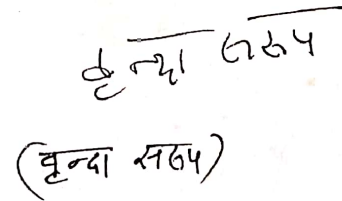 वृन्दा सरूप
(वृन्दा सरूप)